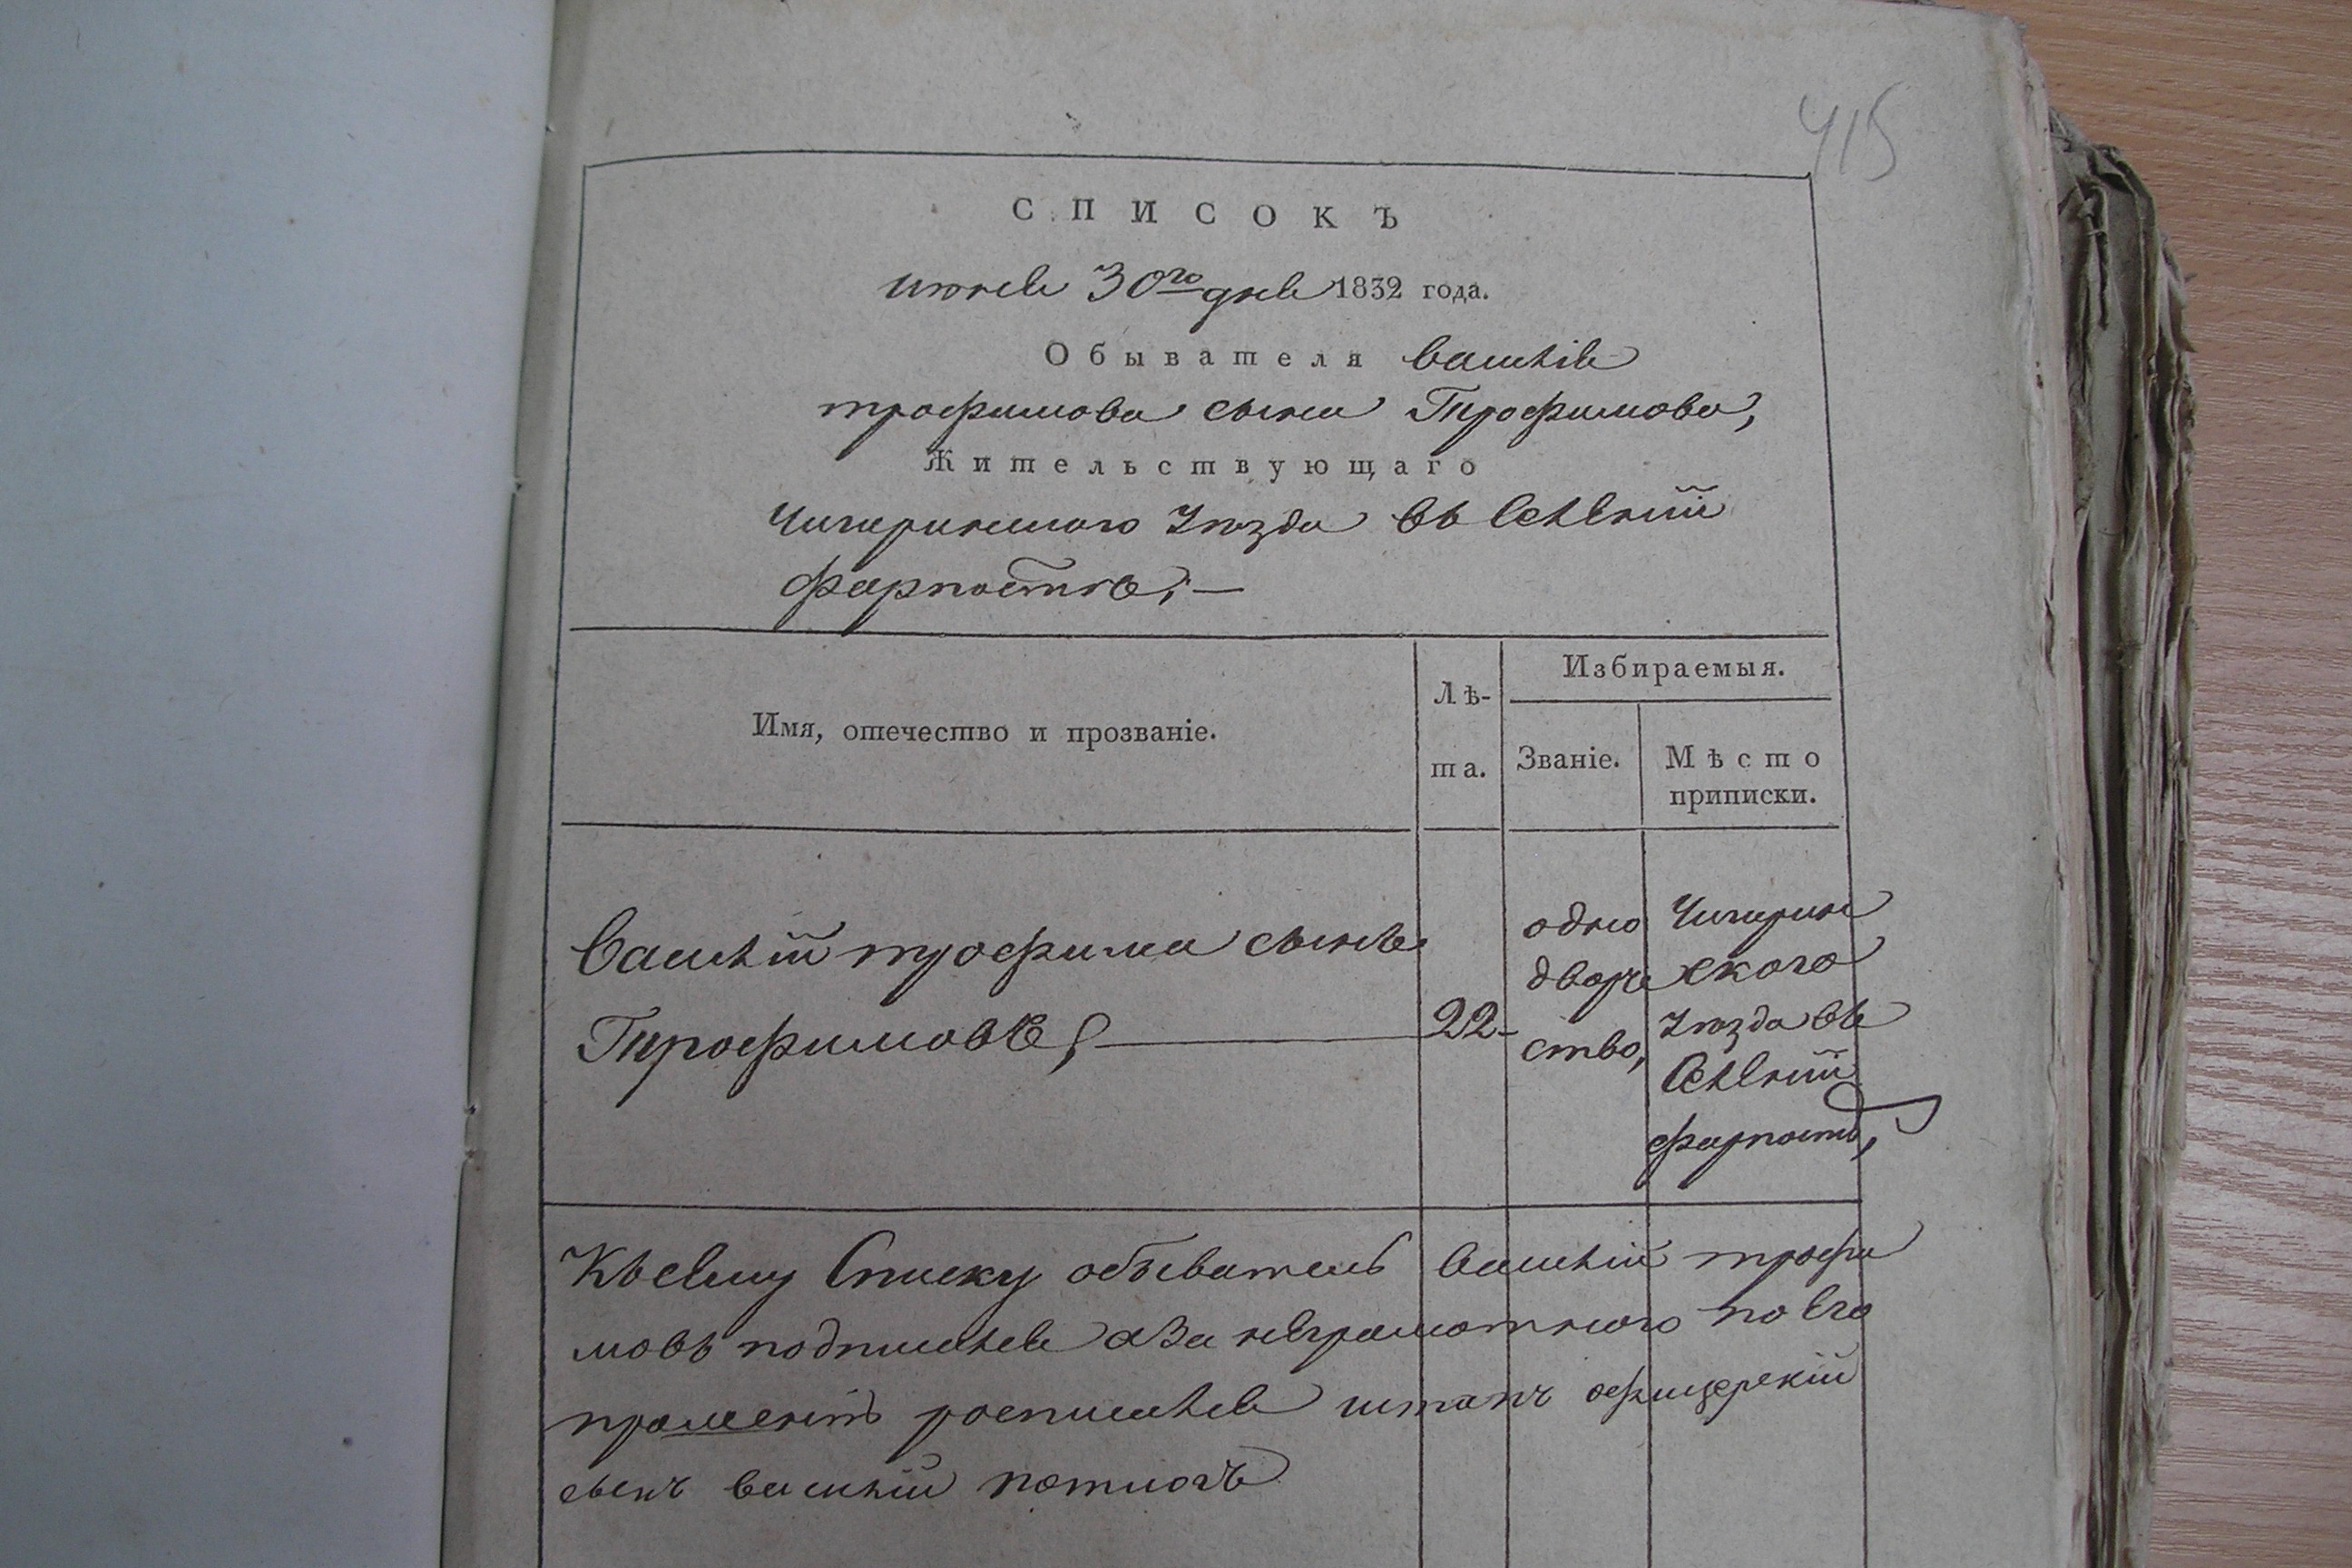 415
СПИСОКЪ
июня 30го дня 1832 года.
Обывателя Василія
трофимова сына Трофимова,
Жительствующаго
Чигиринского уѣзда въ
форпостѣ; —
Имя, отечество и прозваніе.
Лѣ-
та.
Избираемыя.
Званіе.
Мѣсто
приписки.
Василій трофима сынъ
Трофимовъ, —
22-
одно
двор
ство,
Чигирин
ского
уѣзда въ
форпостѣ,
Къ сему Списку обыватель Василій трофи
мовъ подписался а За неграмотного по Его
прошенію росписался штапъ офицерскій
сынъ василій